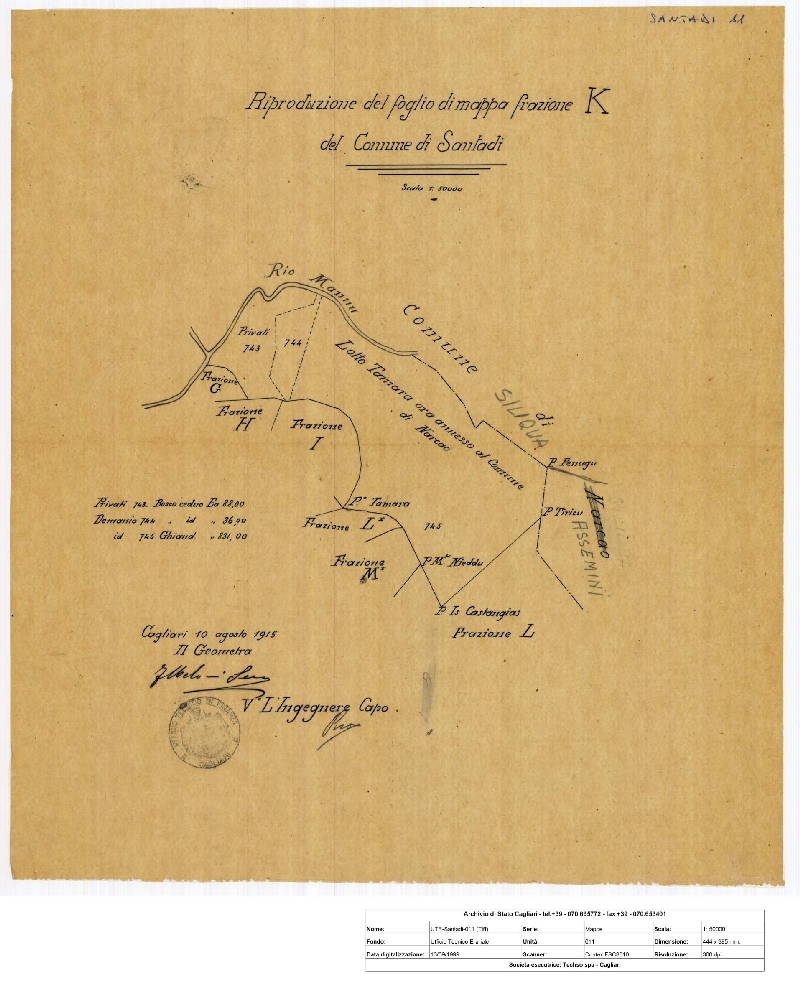 SANTADI 11
Riproduzione del foglio di mappa frazione K
del Comune di Santadi
Scala 1: 50000
Rio Mannu
Comune di
SILIQUA
Privati
743
744
Lotto Tamara ora annesso al Comune
di Narcao
Frazione
G
Frazione
H
Frazione
I
P.
Narcao
ASSEMINI
Privati 743 Bosco ceduo Ea
Demanio 744 " id " 36,00
id 745 Ghiand. " 831,00
Pª Tamara
P. Tiriccu
Frazione L²
745
Frazione
M²
P. Mᵗᵉ Nieddu
P. Is Castangias
Frazione L
Cagliari 10 agosto 1915
Il Geometra
Vº L'Ingegnere Capo.
Archivio di Stato Cagliari - tel.+39 - 070.665772 - fax +39 - 070.653401
Nome: UTE-Santadi-011 (Tiff) Serie: Mappe Scala: 1: 50000
Fondo: Ufficio Tecnico Erariale Unità 011 Dimensione:
Data digitalizzazione: Scanner: Risoluzione: 300 dpi
Società esecutrice: Techso spa - Cagliari